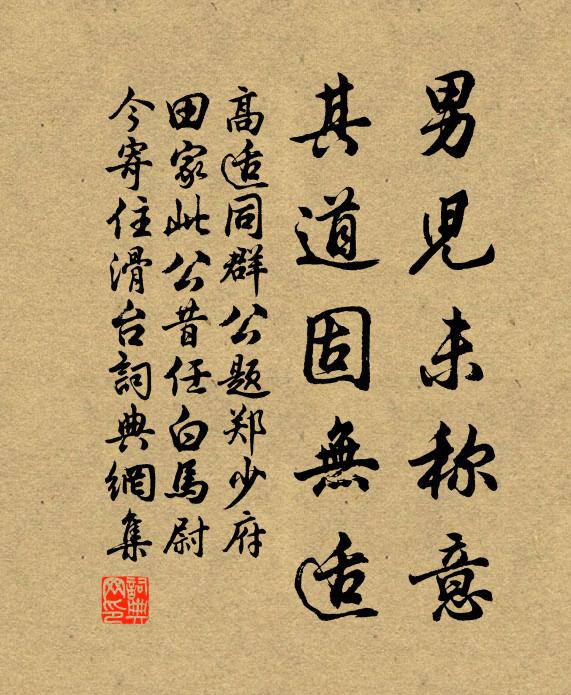 男児未称意
其道固無适
高适同群公题郑少府
田家此公昔任白馬尉
今寄住滑台詞典網集
詞典网印